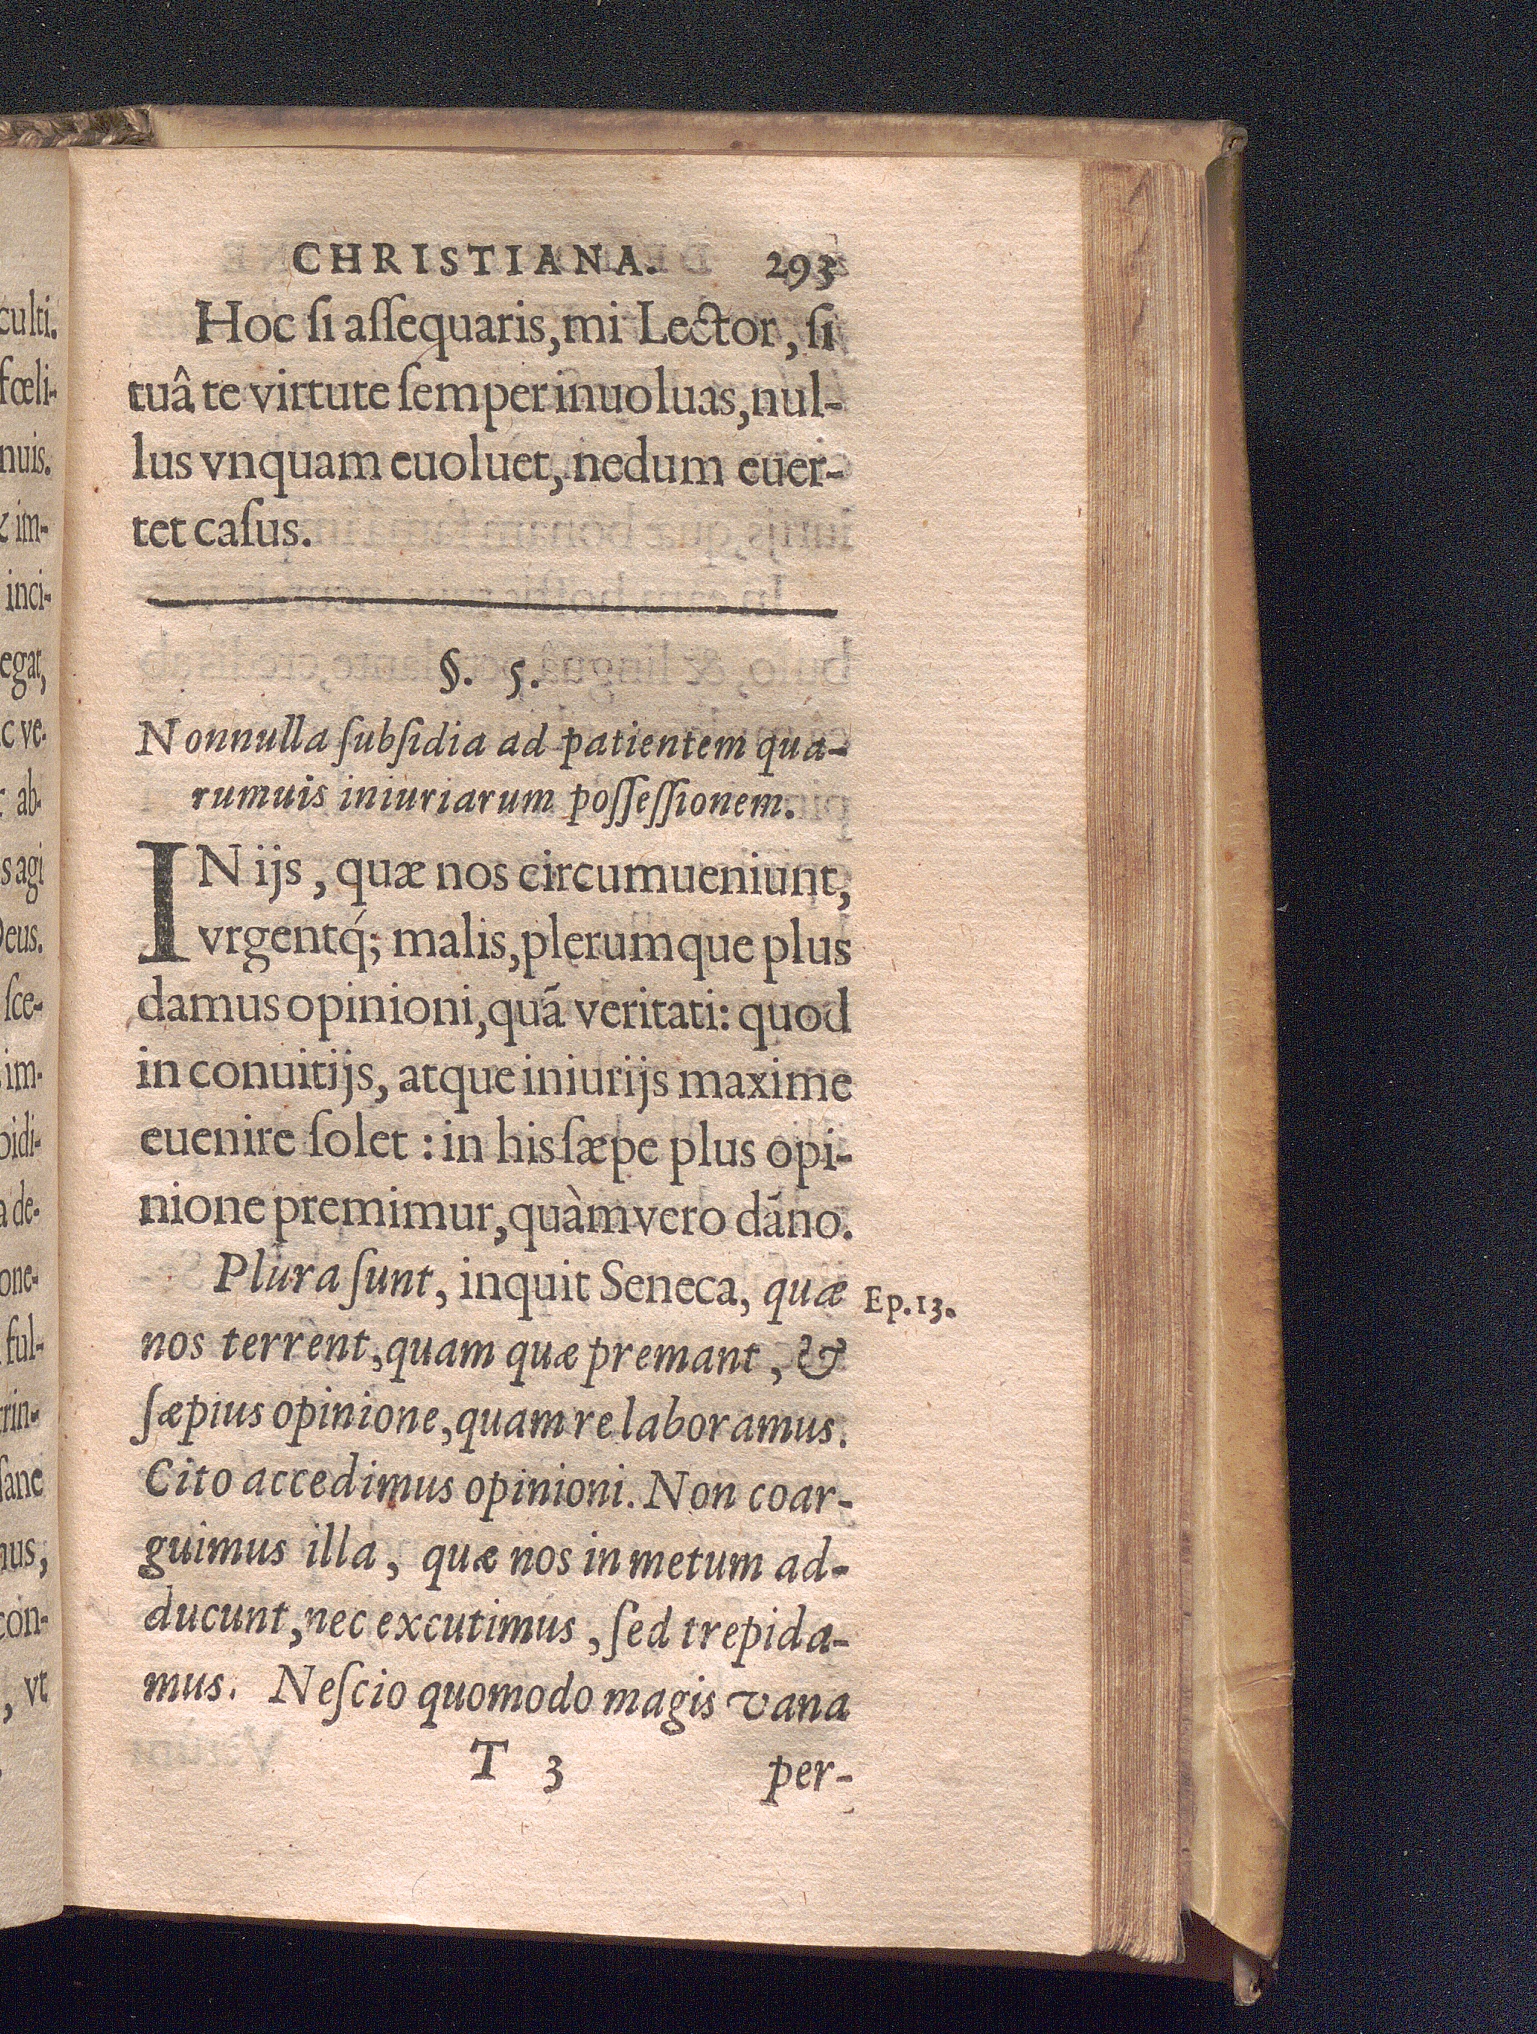 CHRISTIANA. 293
Hoc ſi aſſequaris, mi Lector, ſi
tuâ te virtute ſemper inuoluas, nul-
lus vnquam euoluet, nedum euer-
tet caſus.
§. 5.
Nonnulla ſubſidia ad patientem qua-
rumuis iniuriarum poſſeſſionem.
IN ijs, quæ nos circumueniunt,
vrgentq́; malis, plerumque plus
damus opinioni, quã veritati: quod
in conuitijs, atque iniurijs maxime
euenire ſolet: in his ſæpe plus opi-
nione premimur, quàm vero dãno.
Plura ſunt, inquit Seneca, quæ
Ep. 13.
nos terrent, quam quæ premant, &
ſæpius opinione, quam re laboramus.
Cito accedimus opinioni. Non coar-
guimus illa, quæ nos in metum ad-
ducunt, nec excutimus, ſed trepida-
mus. Neſcio quomodo magis vana
T 3 per-
culti.
fœli-
nuis.
im-
inci-
egat,
c ve-
ab-
s agi
Deus.
ſce-
im-
pidi-
a de-
one-
ful-
rin-
ſane
nus,
con-
, vt